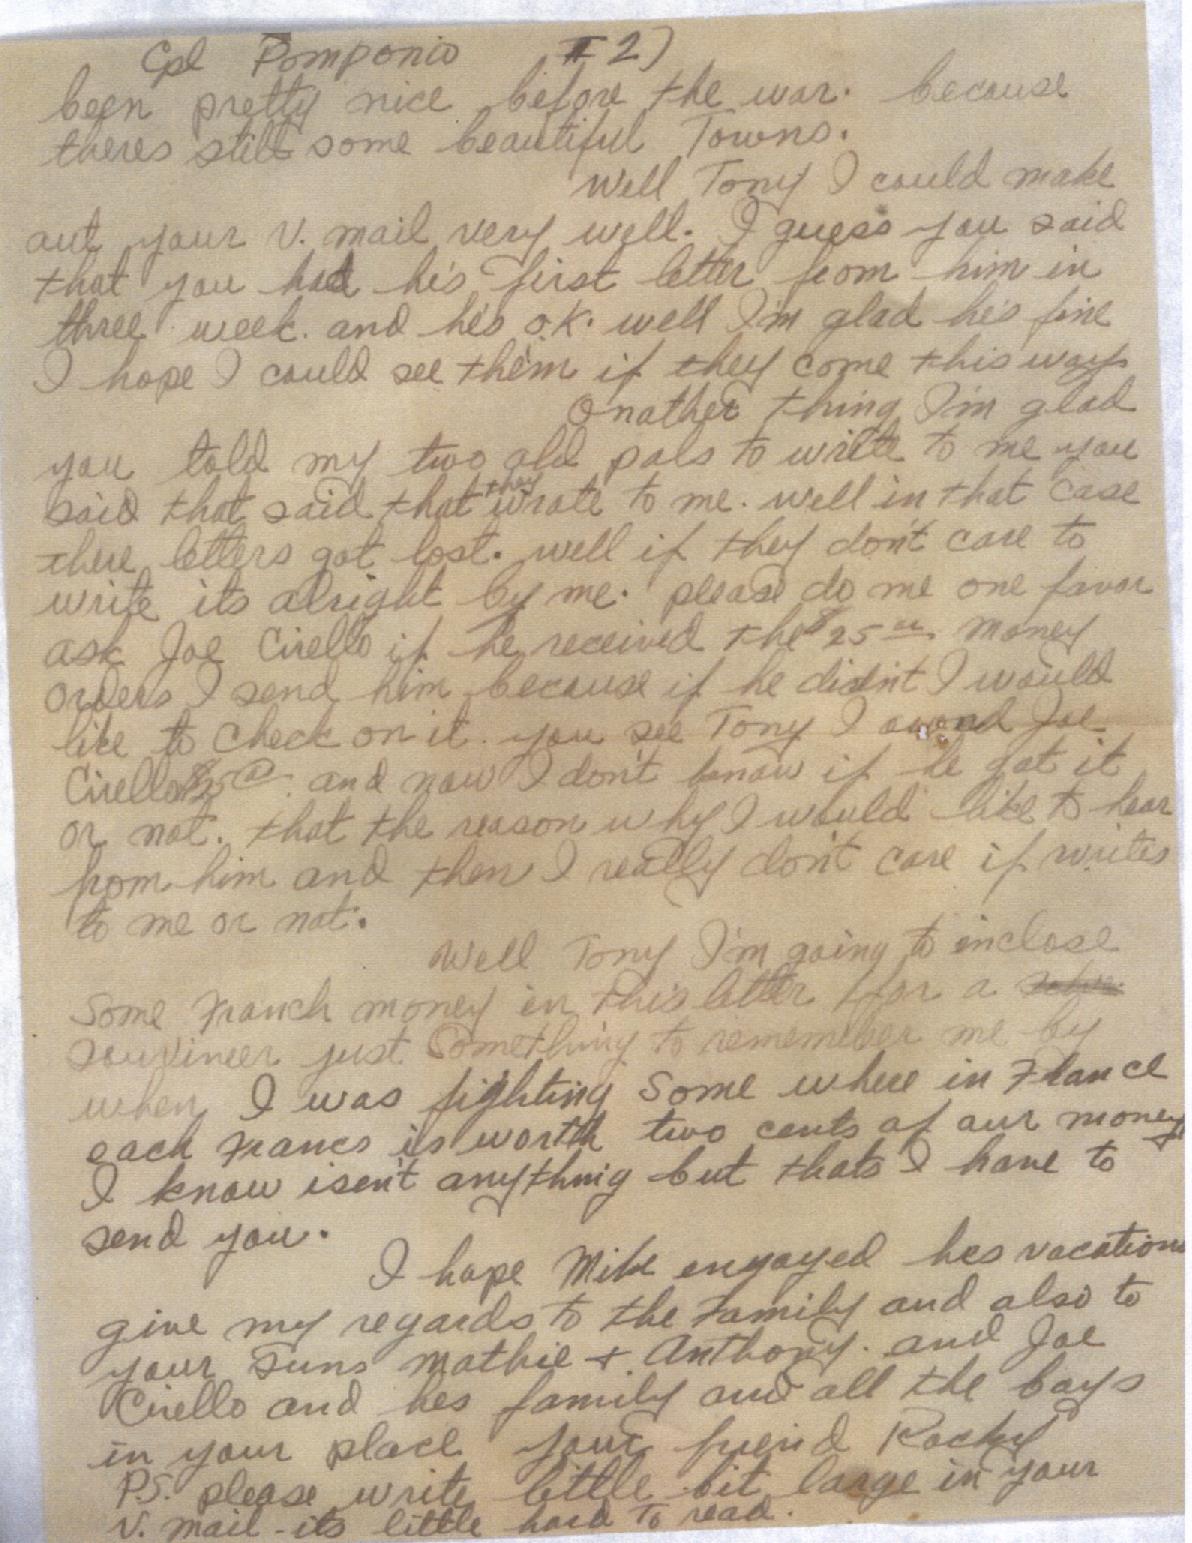 Cpl Pomponio #2)
been pretty nice before the war. because
theres still some beautiful Towns.
Well Tony I could make
out your V. mail very well. I guess you said
that you had his first letter from him in
three week. and he's o.K. well I'm glad he's fine
I hope I could see them if they come this ways
Onather thing I'm glad
you told my two old pals to write to me you
said that said that they wrote to me. well in that case
there letters got lost. well if they don't care to
write its alright by me. please do me one favor
ask Joe Cirello if he received the $25 money
orders I send him because if he didn't I would
like to check on it. you see Tony I owed Joe
Cirello and now I don't know if he got it
or not. that the reason why I would like to hear
from him and then I really don't care if writes
to me or not.
Well Tony I'm going to inclose
Some Franch money in this letter for a
souvineer just Something to remember me by
when I was fighting Some where in France
each Francs is worth two cents of our money
I know isen't anything but thats I have to
send you.
I hope Mike engoyed hes vacation
give my regards to the Family and also to
your Suns Mathie + Anthony. and Joe
Cirello and hes family and all the boys
in your place your friend Rocky
P.S. please write little bit large in your
V. mail - its little hard to read.